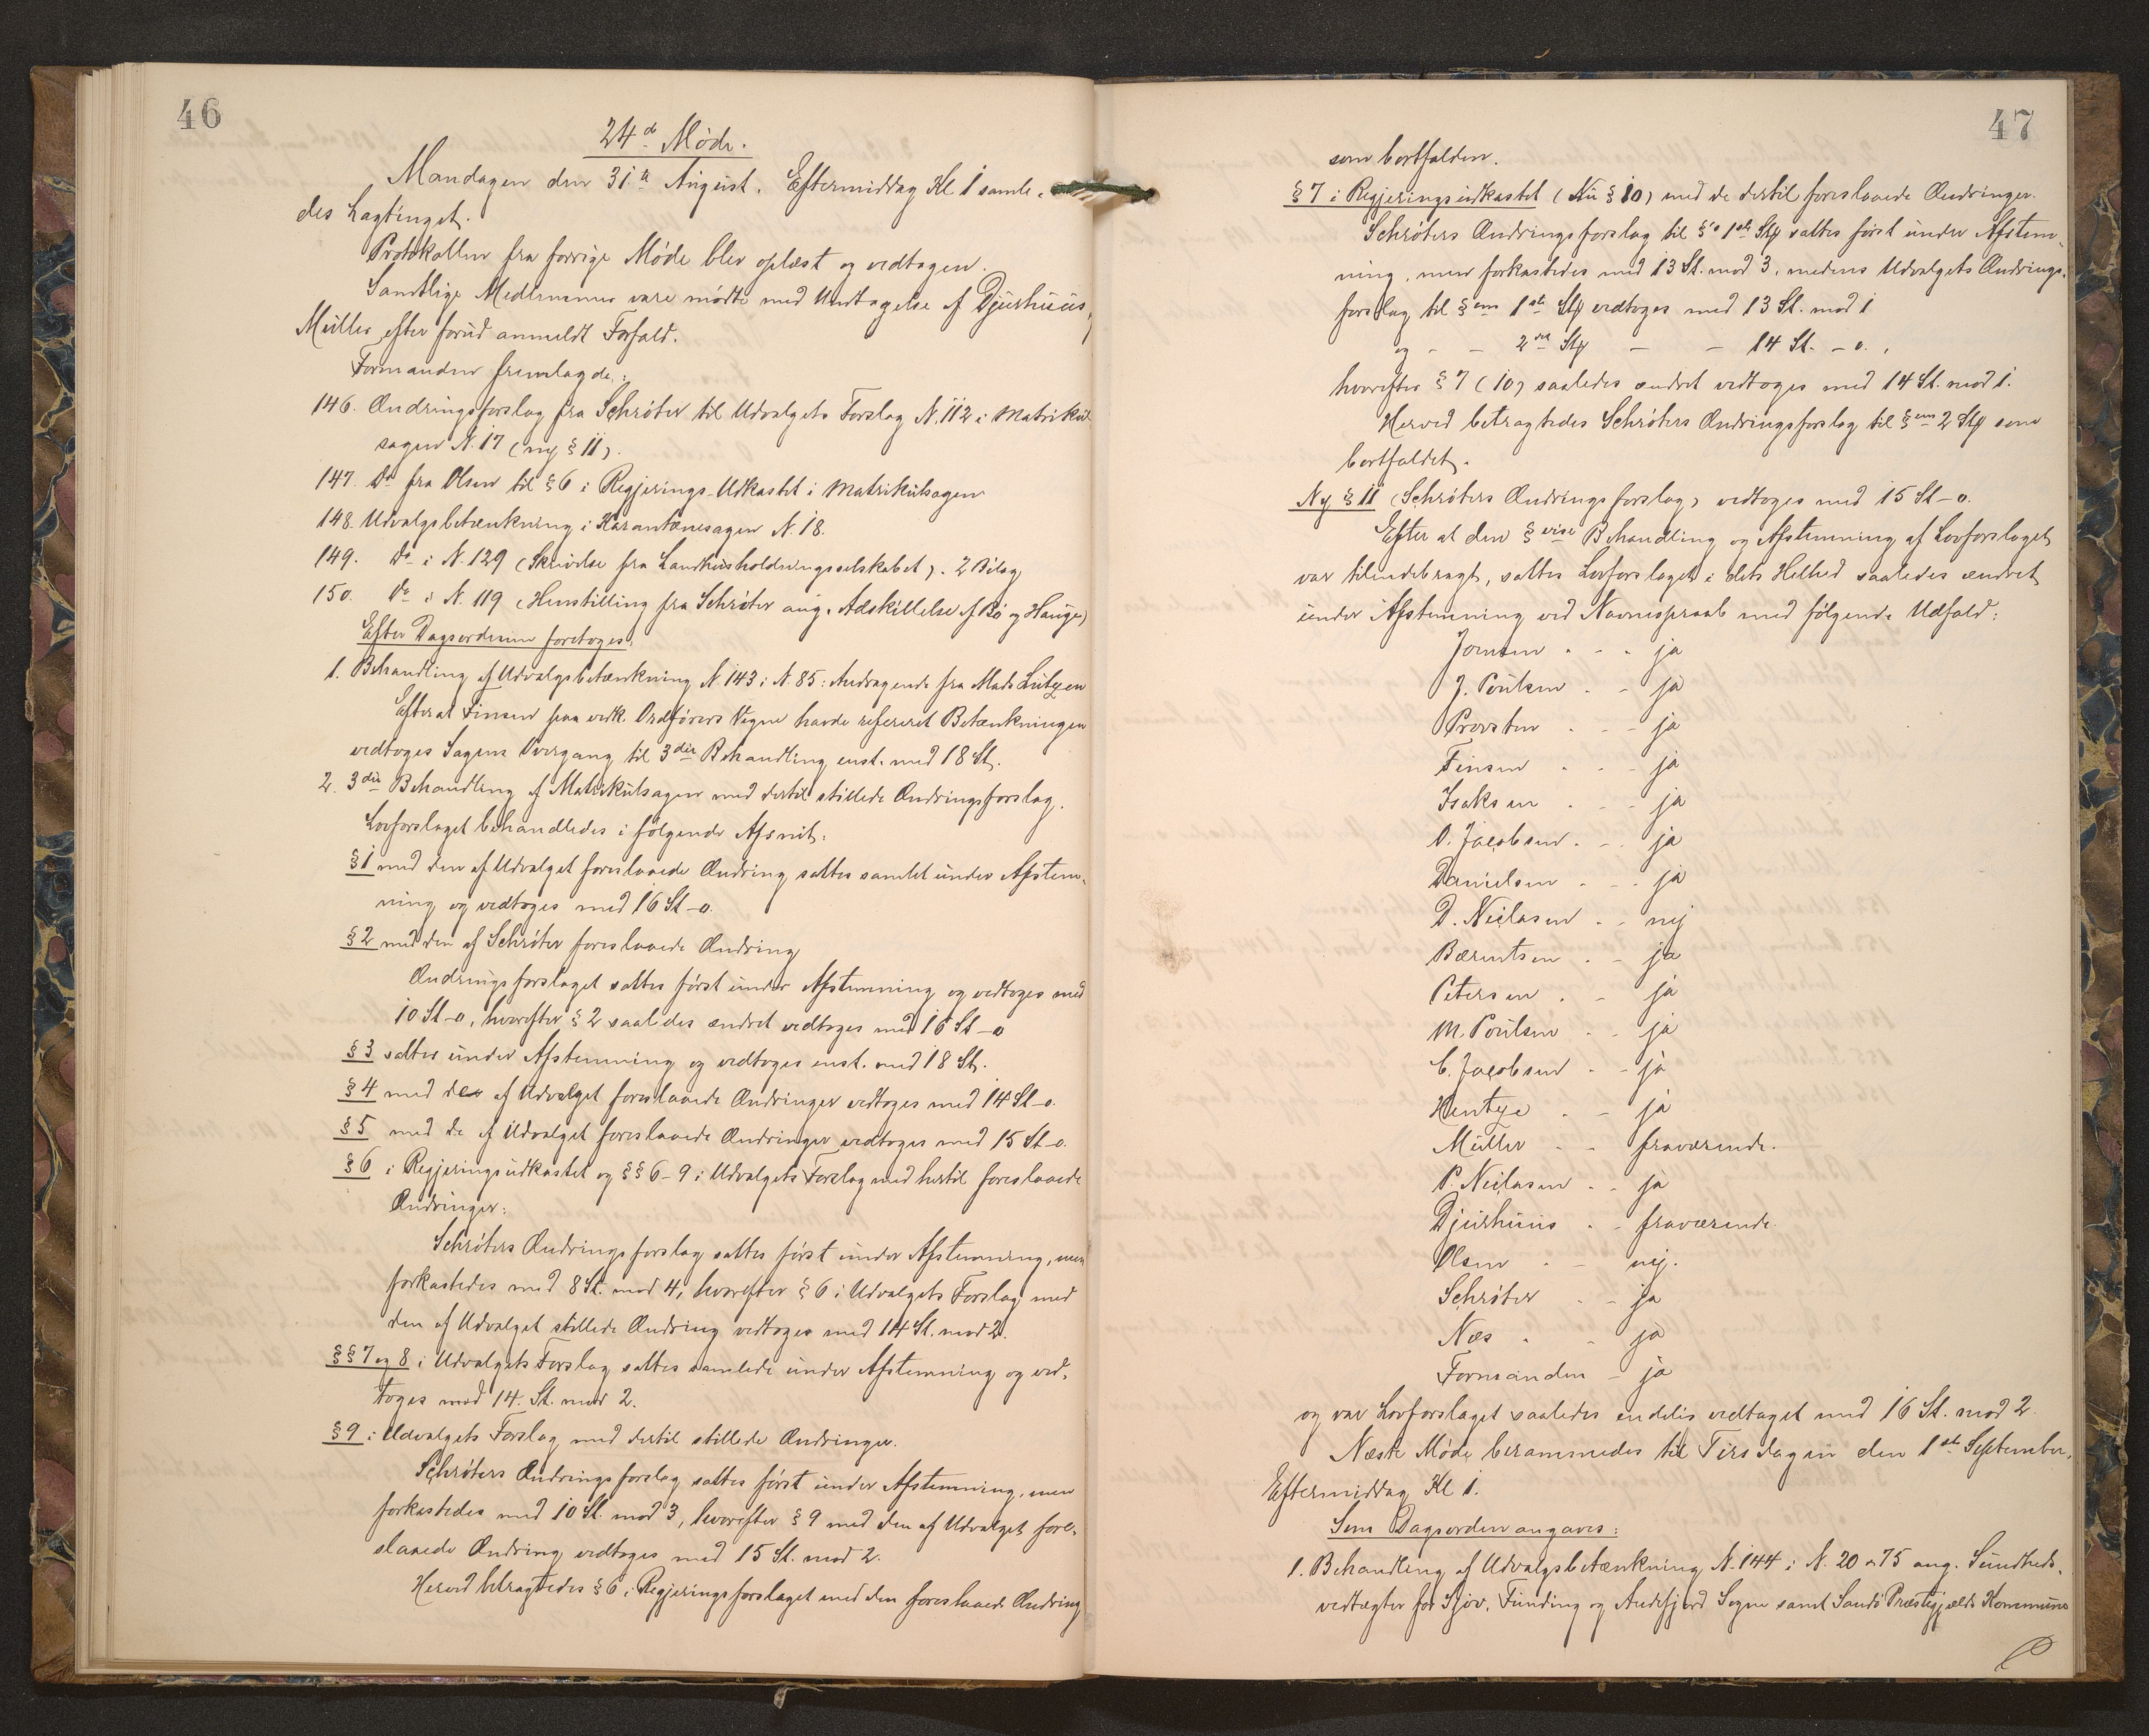 46
24de Møde.
Mandagen den 31te August. Eftermiddag Kl 1 samle-
des Lagtinget.
Protokollen fra forrige Møde blev oplæst og vedtagen.
Samtlige Medlemmer vare mødte med Undtagelse af Djurhuus,
Müller efter forud anmeldt Forfald.
Formanden fremlagde:
146. Ændringsforslag fra Schrøter til Udvalgets Forslag N. 112 i Matrikul
sagen N. 17 (ny § 11).
147. Do fra Olsen til § 6 i Regjerings-Udkastet i Matrikulsagen
148. Udvalgsbetænkning i Karantænesagen N. 18.
149. Do i N. 129 (Skrivelse fra Landhusholdningsselskabet). 2 Bilag
150. Do i N. 119 (Henstilling fra Schrøter ang. Adskillelse af Bø og Hauge)
Efter Dagsordenen foretoges:
1. Behandling af Udvalgsbetænkning N. 143 i N. 85: Andragende fra Mads Lützen
Efterat Finsen paa vedk. Ordførers Vegne havde refereret Betænkningen
vedtoges Sagens Overgang til 3die Behandling enst. med 18 St.
2. 3die Behandling af Matrikulsagen med dertil stillede Ændringsforslag.
Lovforslaget behandledes i følgende Afsnit:
§ 1 med den af Udvalget foreslaaede Ændring sattes samlet under Afstem-
ning og vedtoges med 16 St – 0.
§ 2 med den af Schrøter foreslaaede Ændring
Ændringsforslaget sattes først under Afstemning og vedtoges med
10 St – 0, hvorefter § 2 saaledes ændret vedtoges med 16 St – 0
§ 3 sattes under Afstemning og vedtoges enst. med 18 St.
§ 4 med de af Udvalget foreslaaede Ændringer vedtoges med 14 St – 0.
§ 5 med de af Udvalget foreslaaede Ændringer vedtoges med 15 St – 0.
§ 6 i Regjeringsudkastet og §§ 6–9 i Udvalgets Forslag med hertil foreslaaede
Ændringer:
Schrøters Ændringsforslag sattes først under Afstemning, men
forkastedes med 8 St. mod 4, hvorefter § 6 i Udvalgets Forslag med
den af Udvalget stillede Ændring vedtoges med 14 St. mod 2.
§§ 7 og 8 i Udvalgets Forslag sattes samlede under Afstemning og ved-
toges med 14. St. mod 2.
§ 9 i Udvalgets Forslag med dertil stillede Ændringer.
Schrøters Ændringsforslag sattes først under Afstemning, men
forkastedes med 10 St. mod 3, hvorefter § 9 med den af Udvalget fore-
slaaede Ændring vedtoges med 15 St. mod 2.
Herved betragtedes § 6 i Regjeringsforslaget med den foreslaaede Ændring
47
som bortfalden.
§ 7 i Regjeringsudkastet (Nu § 10) med de dertil foreslaaede Ændringer.
Schrøters Ændringsforslag til §'s 1ste Stk sattes først under Afstem-
ning, men forkastedes med 13 St. mod 3, medens Udvalgets Ændrings-
forslag til §ens 1ste Stk vedtoges med 13 St. mod 1
og – – 2det Stk – – 14 St. – 0.,
hvorefter § 7 (10) saaledes ændret vedtoges med 14 St. mod 1.
Herved betragtedes Schrøters Ændringsforslag til §ens 2 Stk som
bortfaldet.
Ny § 11 (Schrøters Ændringsforslag) vedtoges med 15 St – 0.
Efter at den §vise Behandling og Afstemning af Lovforslaget
var tilendebragt, sattes Lovforslaget i dets Helhed saaledes ændret
under Afstemning ved Navneopraab med følgende Udfald:
Joensen . - . ja
J. Poulsen . - ja
Provsten . - ja
Finsen . - ja
Isaksen . - ja
O. Jacobsen . - ja
Danielsen . - ja
D. Niclasen . - nej
Bærentsen . - ja
Petersen . - ja
M. Poulsen . - ja
C. Jacobsen . - ja
Hentze . - ja
Müller . - fraværende.
P. Niclasen . - ja
Djurhuus . - fraværende.
Olsen . - nej.
Schrøter . - ja
Næs . - ja
Formanden - ja
og var Lovforslaget saaledes endelig vedtaget med 16 St. mod 2
Næste Møde berammedes til Tirsdagen den 1ste September,
Eftermiddag Kl 1.
Som Dagsorden angaves:
1. Behandling af Udvalgsbetænkning N. 144 i N. 20 a 75 ang. Sundheds-
vedtægter for Sjov, Funding og Andefjord Sogne samt Sandø Præstegjælds Kommune